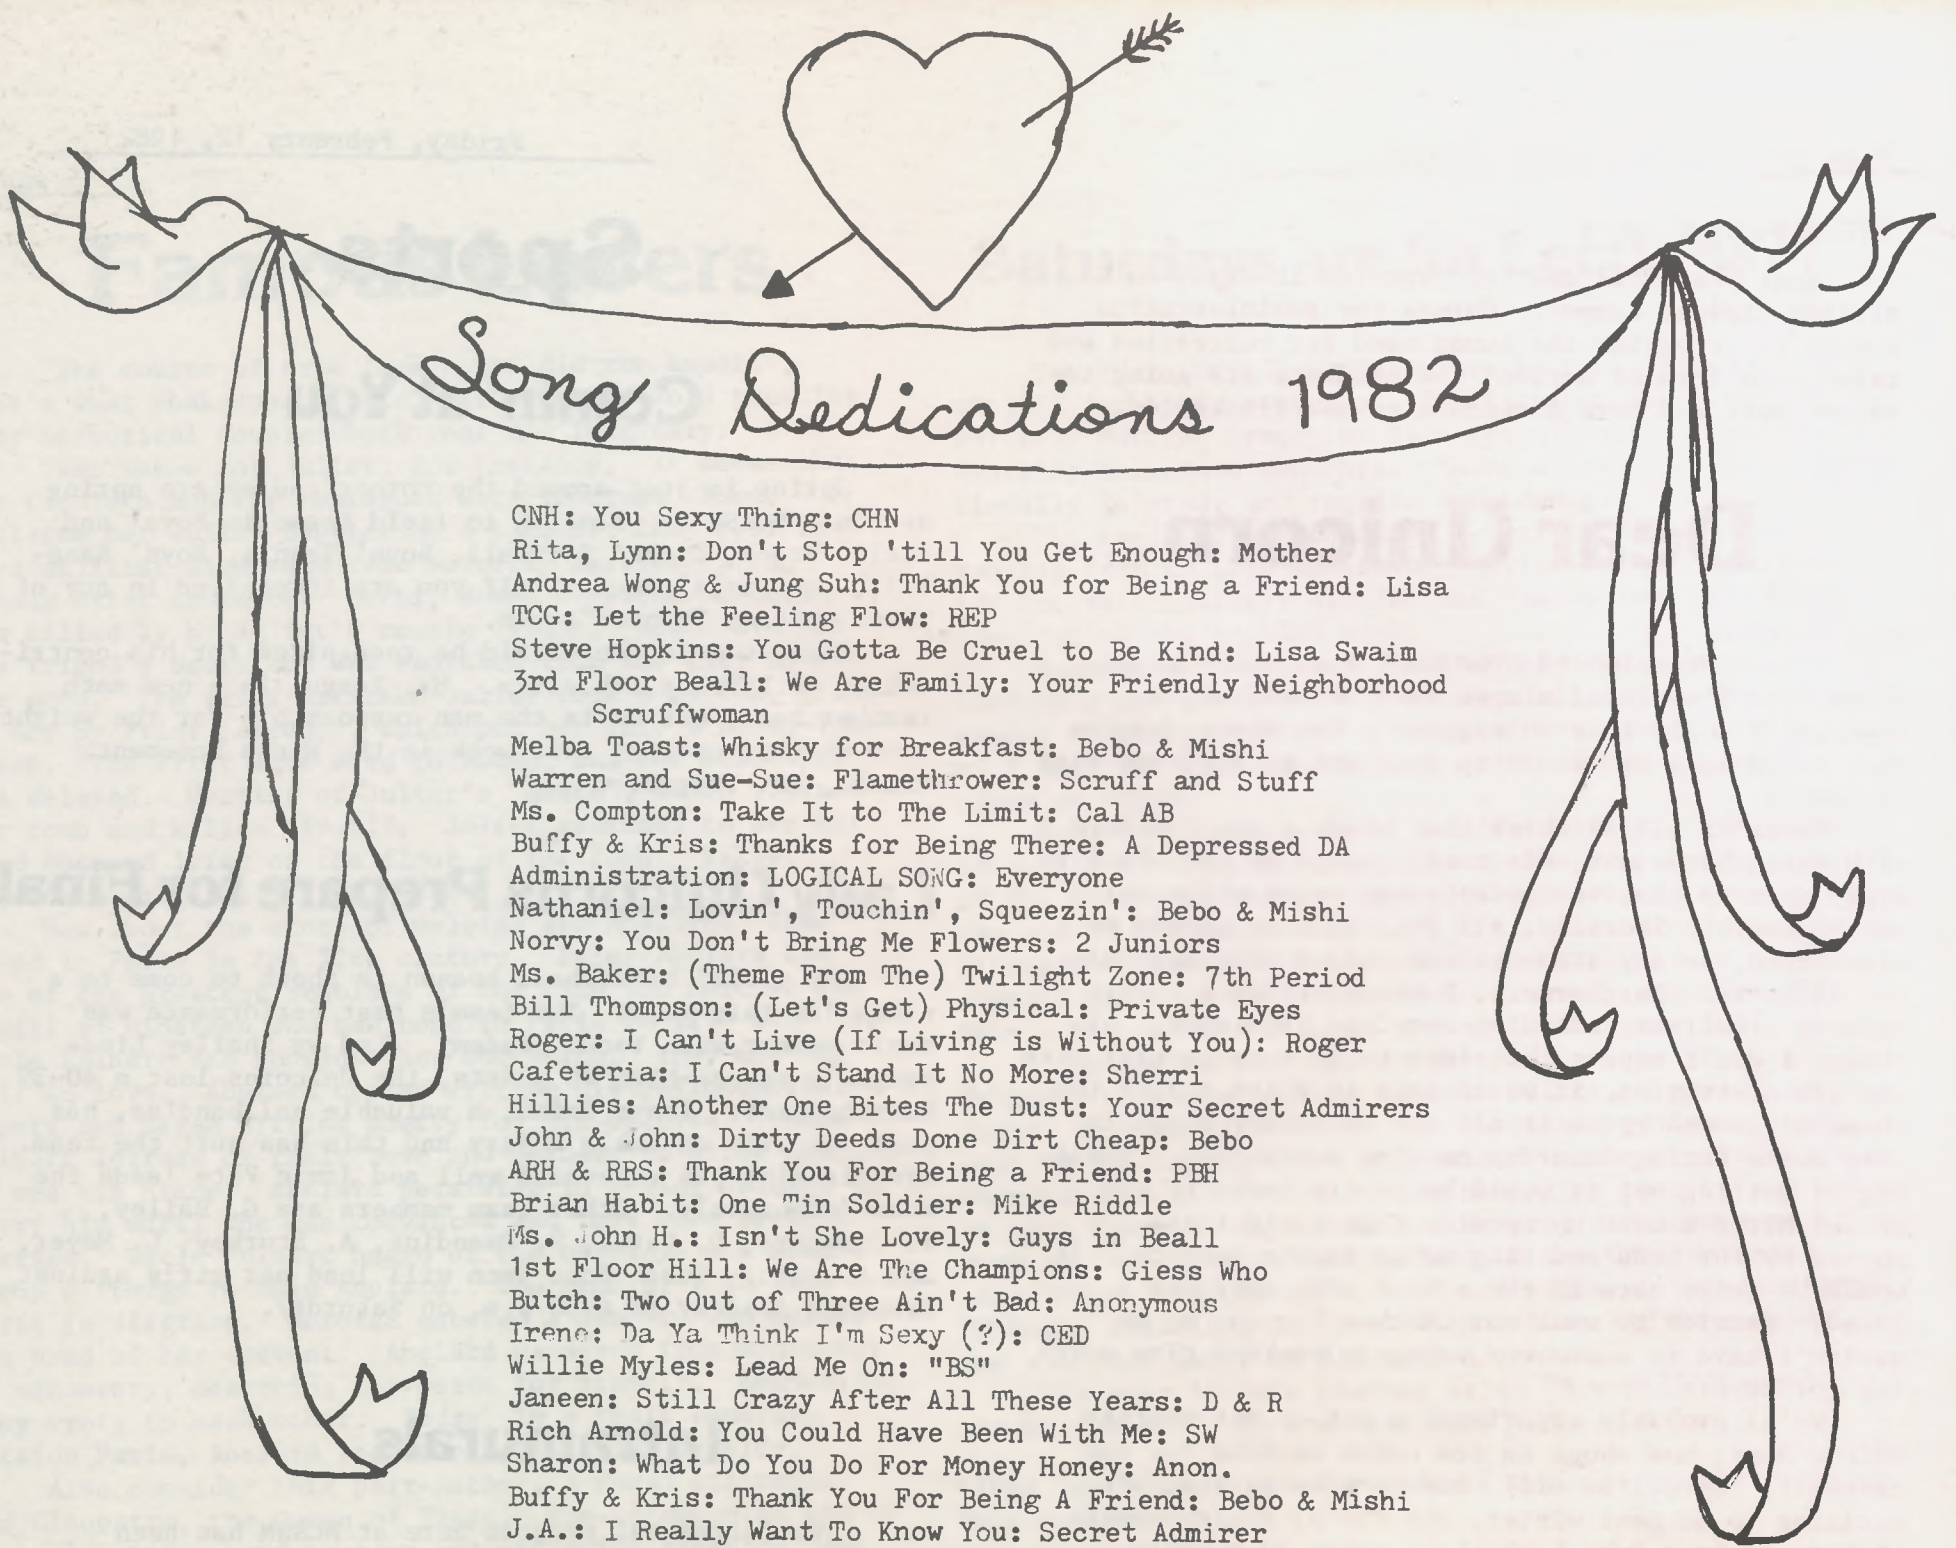 Song Dedications 1982
CNH: You Sexy Thing: CHN
Rita, Lynn: Don't Stop 'till You Get Enough: Mother
Andrea Wong & Jung Suh: Thank You for Being a Friend: Lisa
TCG: Let the Feeling Flow: REP
Steve Hopkins: You Gotta Be Cruel to Be Kind: Lisa Swaim
3rd Floor Beall: We Are Family: Your Friendly Neighborhood
Scruffwoman
Melba Toast: Whisky for Breakfast: Bebo & Mishi
Warren and Sue-Sue: Flamethrower: Scruff and Stuff
Ms. Compton: Take It to The Limit: Cal AB
Buffy & Kris: Thanks for Being There: A Depressed DA
Administration: LOGICAL SONG: Everyone
Nathaniel: Lovin', Touchin', Squeezin': Bebo & Mishi
Norvy: You Don't Bring Me Flowers: 2 Juniors
Ms. Baker: (Theme From The) Twilight Zone: 7th Period
Bill Thompson: (Let's Get) Physical: Private Eyes
Roger: I Can't Live (If Living is Without You): Roger
Cafeteria: I Can't Stand It No More: Sherri
Hillies: Another One Bites The Dust: Your Secret Admirers
John & John: Dirty Deeds Done Dirt Cheap: Bebo
ARH & RRS: Thank You For Being a Friend: PBH
Brian Habit: One Tin Soldier: Mike Riddle
Ms. John H.: Isn't She Lovely: Guys in Beall
1st Floor Hill: We Are The Champions: Giess Who
Butch: Two Out of Three Ain't Bad: Anonymous
Irene: Da Ya Think I'm Sexy (?): CED
Willie Myles: Lead Me On: "BS"
Janeen: Still Crazy After All These Years: D & R
Rich Arnold: You Could Have Been With Me: SW
Sharon: What Do You Do For Money Honey: Anon.
Buffy & Kris: Thank You For Being A Friend: Bebo & Mishi
J.A.: I Really Want To Know You: Secret Admirer